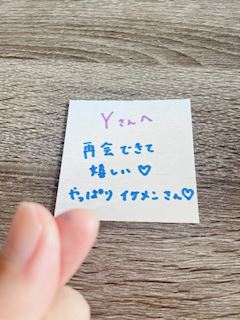 Yさんへ
再会できて
嬉しい♡
やっぱりイケメンさん♡